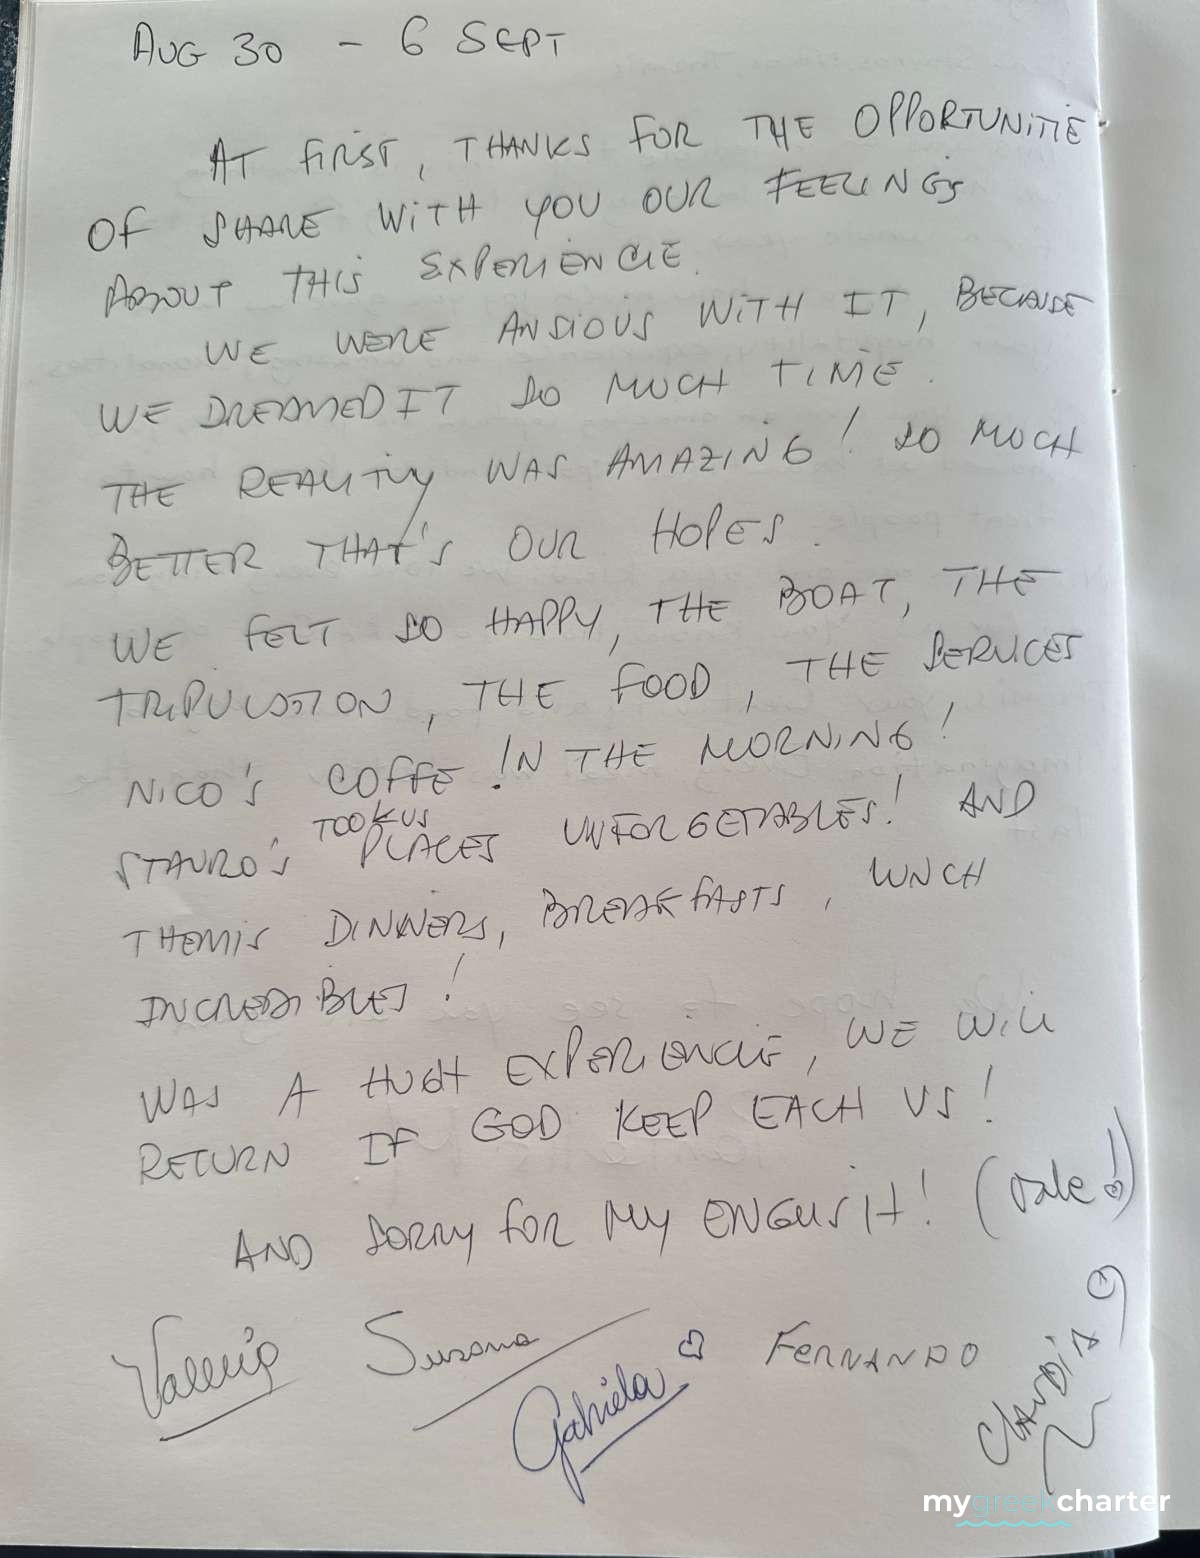 AUG 30 - 6 SEPT
AT FIRST, THANKS FOR THE OPPORTUNITIE
OF SHARE WITH YOU OUR FEELINGS
ABOUT THIS EXPERIENCIE.
WE WERE ANSIOUS WITH IT, BECAUSE
WE DREAMED IT SO MUCH TIME.
THE REALITIY WAS AMAZING! SO MUCH
BETTER THAT'S OUR HOPES.
WE FELT SO HAPPY, THE BOAT, THE
TRIPULATION, THE FOOD, THE SERVICES
NICO'S COFFE IN THE MORNING!
STAVRO'S TOOK US PLACES UNFORGETABLES! AND
THEMIS DINNERS, BREAKFASTS, LUNCH
INCREDIBLES!
WAS A HUGH EXPERIENCIE, WE WILL
RETURN IF GOD KEEP EACH US!
AND SORRY FOR MY ENGLISH! (
Valeria Susana Gabriela FERNANDO CLAUDIA
mygreekcharter